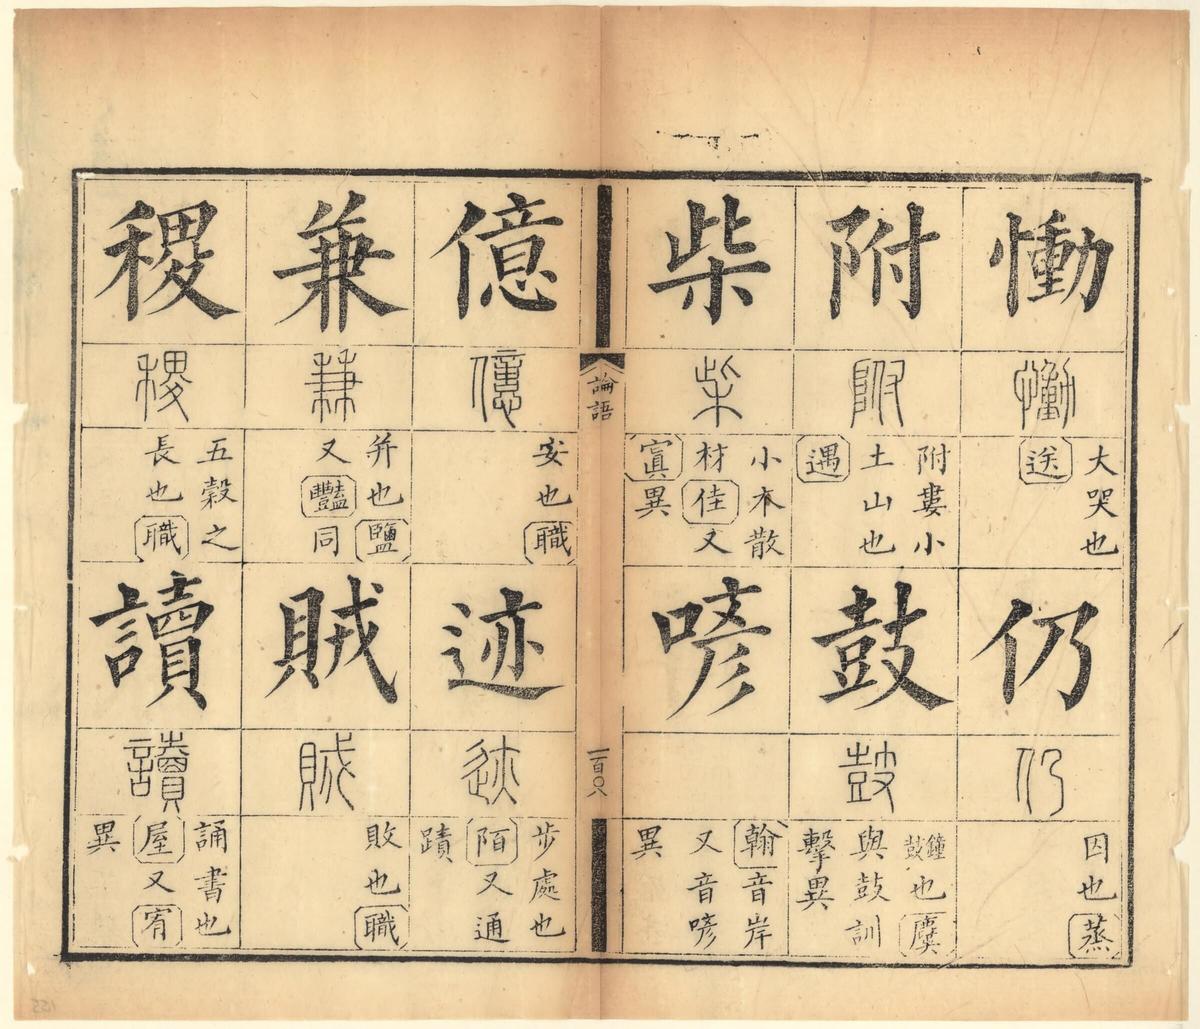 慟
慟
大哭也
送
仍
仍
因也蒸
附
附
附婁小
土山也
遇
鼓
鼓
鐘鼓也麌
與鼓訓
擊異
柴
柴
小木散
材佳又
寘異
喭
翰音岸
又音喭
異
論語
一百〇八
億
億
安也職
迹
迹
步處也
陌又通
蹟
兼
兼
并也鹽
又豔同
賊
賊
敗也職
稷
稷
五穀之
長也職
讀
讀
誦書也
屋又宥
異